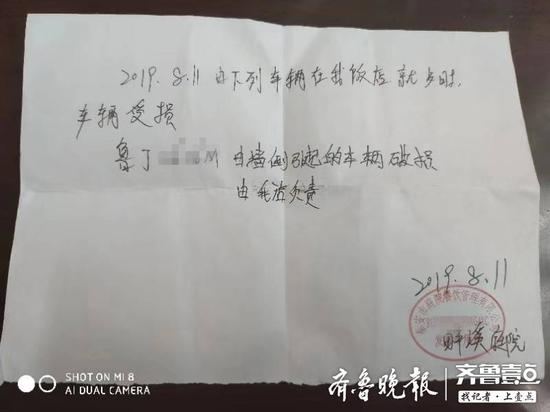 2019.8.11 由下列车辆在我饭店就歺时,
车辆受损
鲁J M 由墙倒引起的车辆破损
由我店负责
2019.8.11
畔溪庭院
SHOT ON MI 8
AI DUAL CAMERA
齐鲁晚报
齐鲁壹点
找记者·上壹点